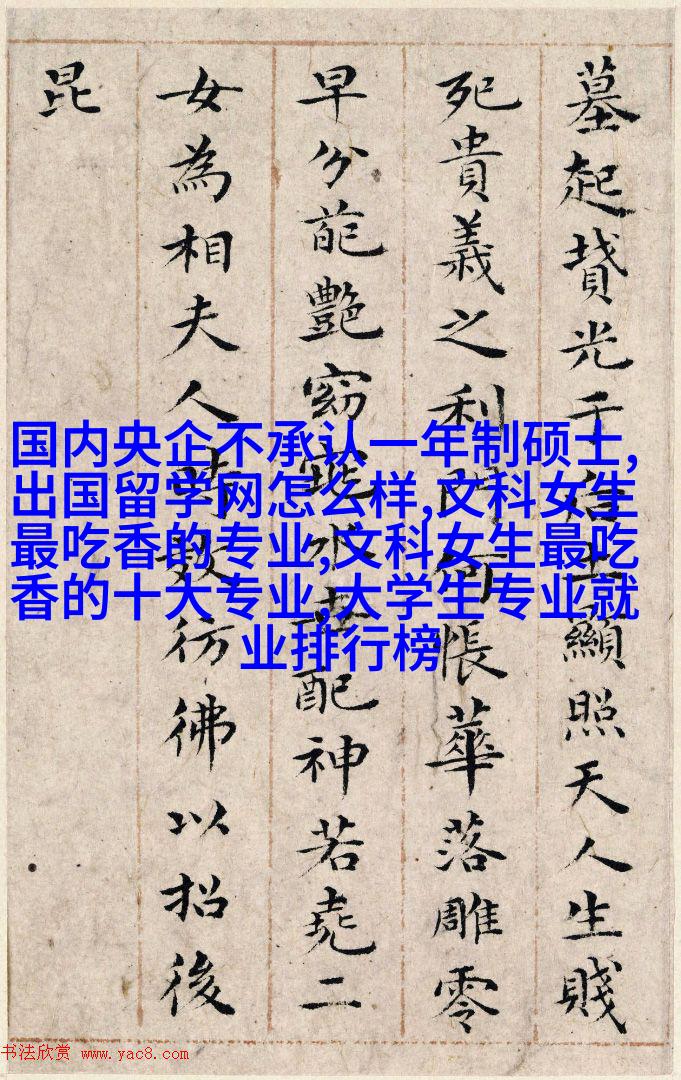 墓起墳光于后土顯照天人生賤
死貴義之利門何悵華落雕零
早分葩艷窈窕永世配神若堯二
女為相夫人時效彷彿以招後
昆
国内央企不承认一年制硕士,
出国留学网怎么样,文科女生
最吃香的专业,文科女生最吃
香的十大专业,大学生专业就
业排行榜
书法欣赏 www.yac8.com